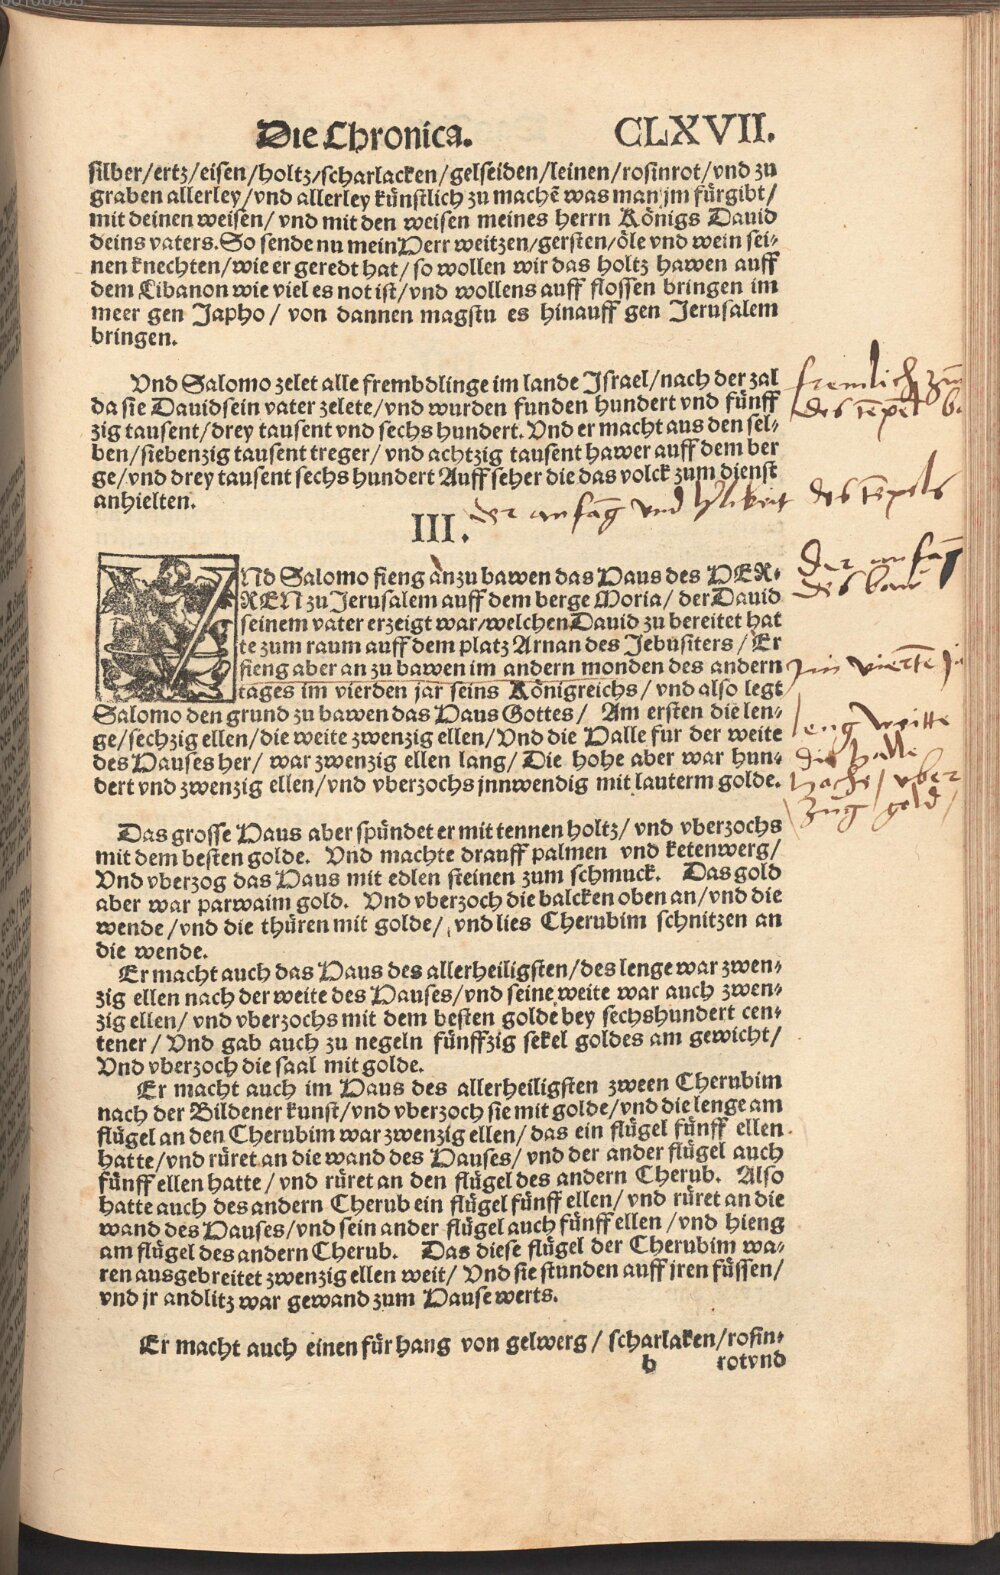 Die Chronica. CLXVII.
silber/ertz/eisen/holtz/scharlacken/gelseiden/leinen/rosinrot/vnd zu
graben allerley/vnd allerley künstlich zu machē was man jm fürgibt/
mit deinen weisen/ vnd mit den weisen meines herrn Königs Dauid
deins vaters. So sende nu mein Herr weitzen/gersten/öle vnd wein sei-
nen knechten/wie er geredt hat/ so wollen wir das holtz hawen auff
dem Libanon wie viel es not ist/vnd wollens auff flossen bringen im
meer gen Japho/ von dannen magstu es hinauff gen Jerusalem
bringen.
Vnd Salomo zelet alle frembdlinge im lande Israel/nach der zal
da sie Dauid sein vater zelete/vnd wurden funden hundert vnd fünff
zig tausent/drey tausent vnd sechs hundert. Vnd er macht aus den sel-
ben/siebenzig tausent treger/ vnd achtzig tausent hawer auff dem ber
ge/vnd drey tausent sechs hundert Auffseher die das volck zum dienst
anhielten.
fremlich
des tēpel
der anfāg vnd des tēpels
III.
VNd Salomo fieng an zu bawen das Haus des HER-
REN zu Jerusalem auff dem berge Moria/ der Dauid
seinem vater erzeigt war/welchen Dauid zu bereitet hat
te zum raum auff dem platz Arnan des Jebusiters/ Er
fieng aber an zu bawen im andern monden des andern
tages im vierden jar seins Königreichs/ vnd also legt
Salomo den grund zu bawen das Haus Gottes/ Am ersten die len-
ge/sechzig ellen/die weite zwenzig ellen/Vnd die Halle fur der weite
des Hauses her/ war zwenzig ellen lang/ Die hohe aber war hun-
dert vnd zwenzig ellen/vnd vberzochs jnnwendig mit lauterm golde.
der anfāg
des baw
im vierte
leng weitte
die halle
hoche/ vber
zug gold/
Das grosse Haus aber spündet er mit tennen holtz/ vnd vberzochs
mit dem besten golde. Vnd machte drauff palmen vnd ketenwerg/
Vnd vberzog das Haus mit edlen steinen zum schmuck. Das gold
aber war parwaim gold. Vnd vberzoch die balcken oben an/vnd die
wende/vnd die thüren mit golde/ vnd lies Cherubim schnitzen an
die wende.
Er macht auch das Haus des allerheiligsten/des lenge war zwen-
zig ellen nach der weite des Hauses/vnd seine weite war auch zwen-
zig ellen/ vnd vberzochs mit dem besten golde bey sechshundert cen-
tener/ Vnd gab auch zu negeln fünffzig sekel goldes am gewicht/
Vnd vberzoch die saal mit golde.
Er macht auch im Haus des allerheiligsten zween Cherubim
nach der Bildener kunst/vnd vberzoch sie mit golde/vnd die lenge am
flügel an den Cherubim war zwenzig ellen/ das ein flügel fünff ellen
hatte/vnd rüret an die wand des Hauses/ vnd der ander flügel auch
fünff ellen hatte/ vnd rüret an den flügel des andern Cherub. Also
hatte auch des andern Cherub ein flügel fünff ellen/ vnd rüret an die
wand des Hauses/vnd sein ander flügel auch fünff ellen/vnd hieng
am flügel des andern Cherub. Das diese flügel der Cherubim wa-
ren ausgebreitet zwenzig ellen weit/ Vnd sie stunden auff jren füssen/
vnd jr andlitz war gewand zum Hause werts.
Er macht auch einen fürhang von gelwerg/ scharlaken/rosin-
b rotvnd